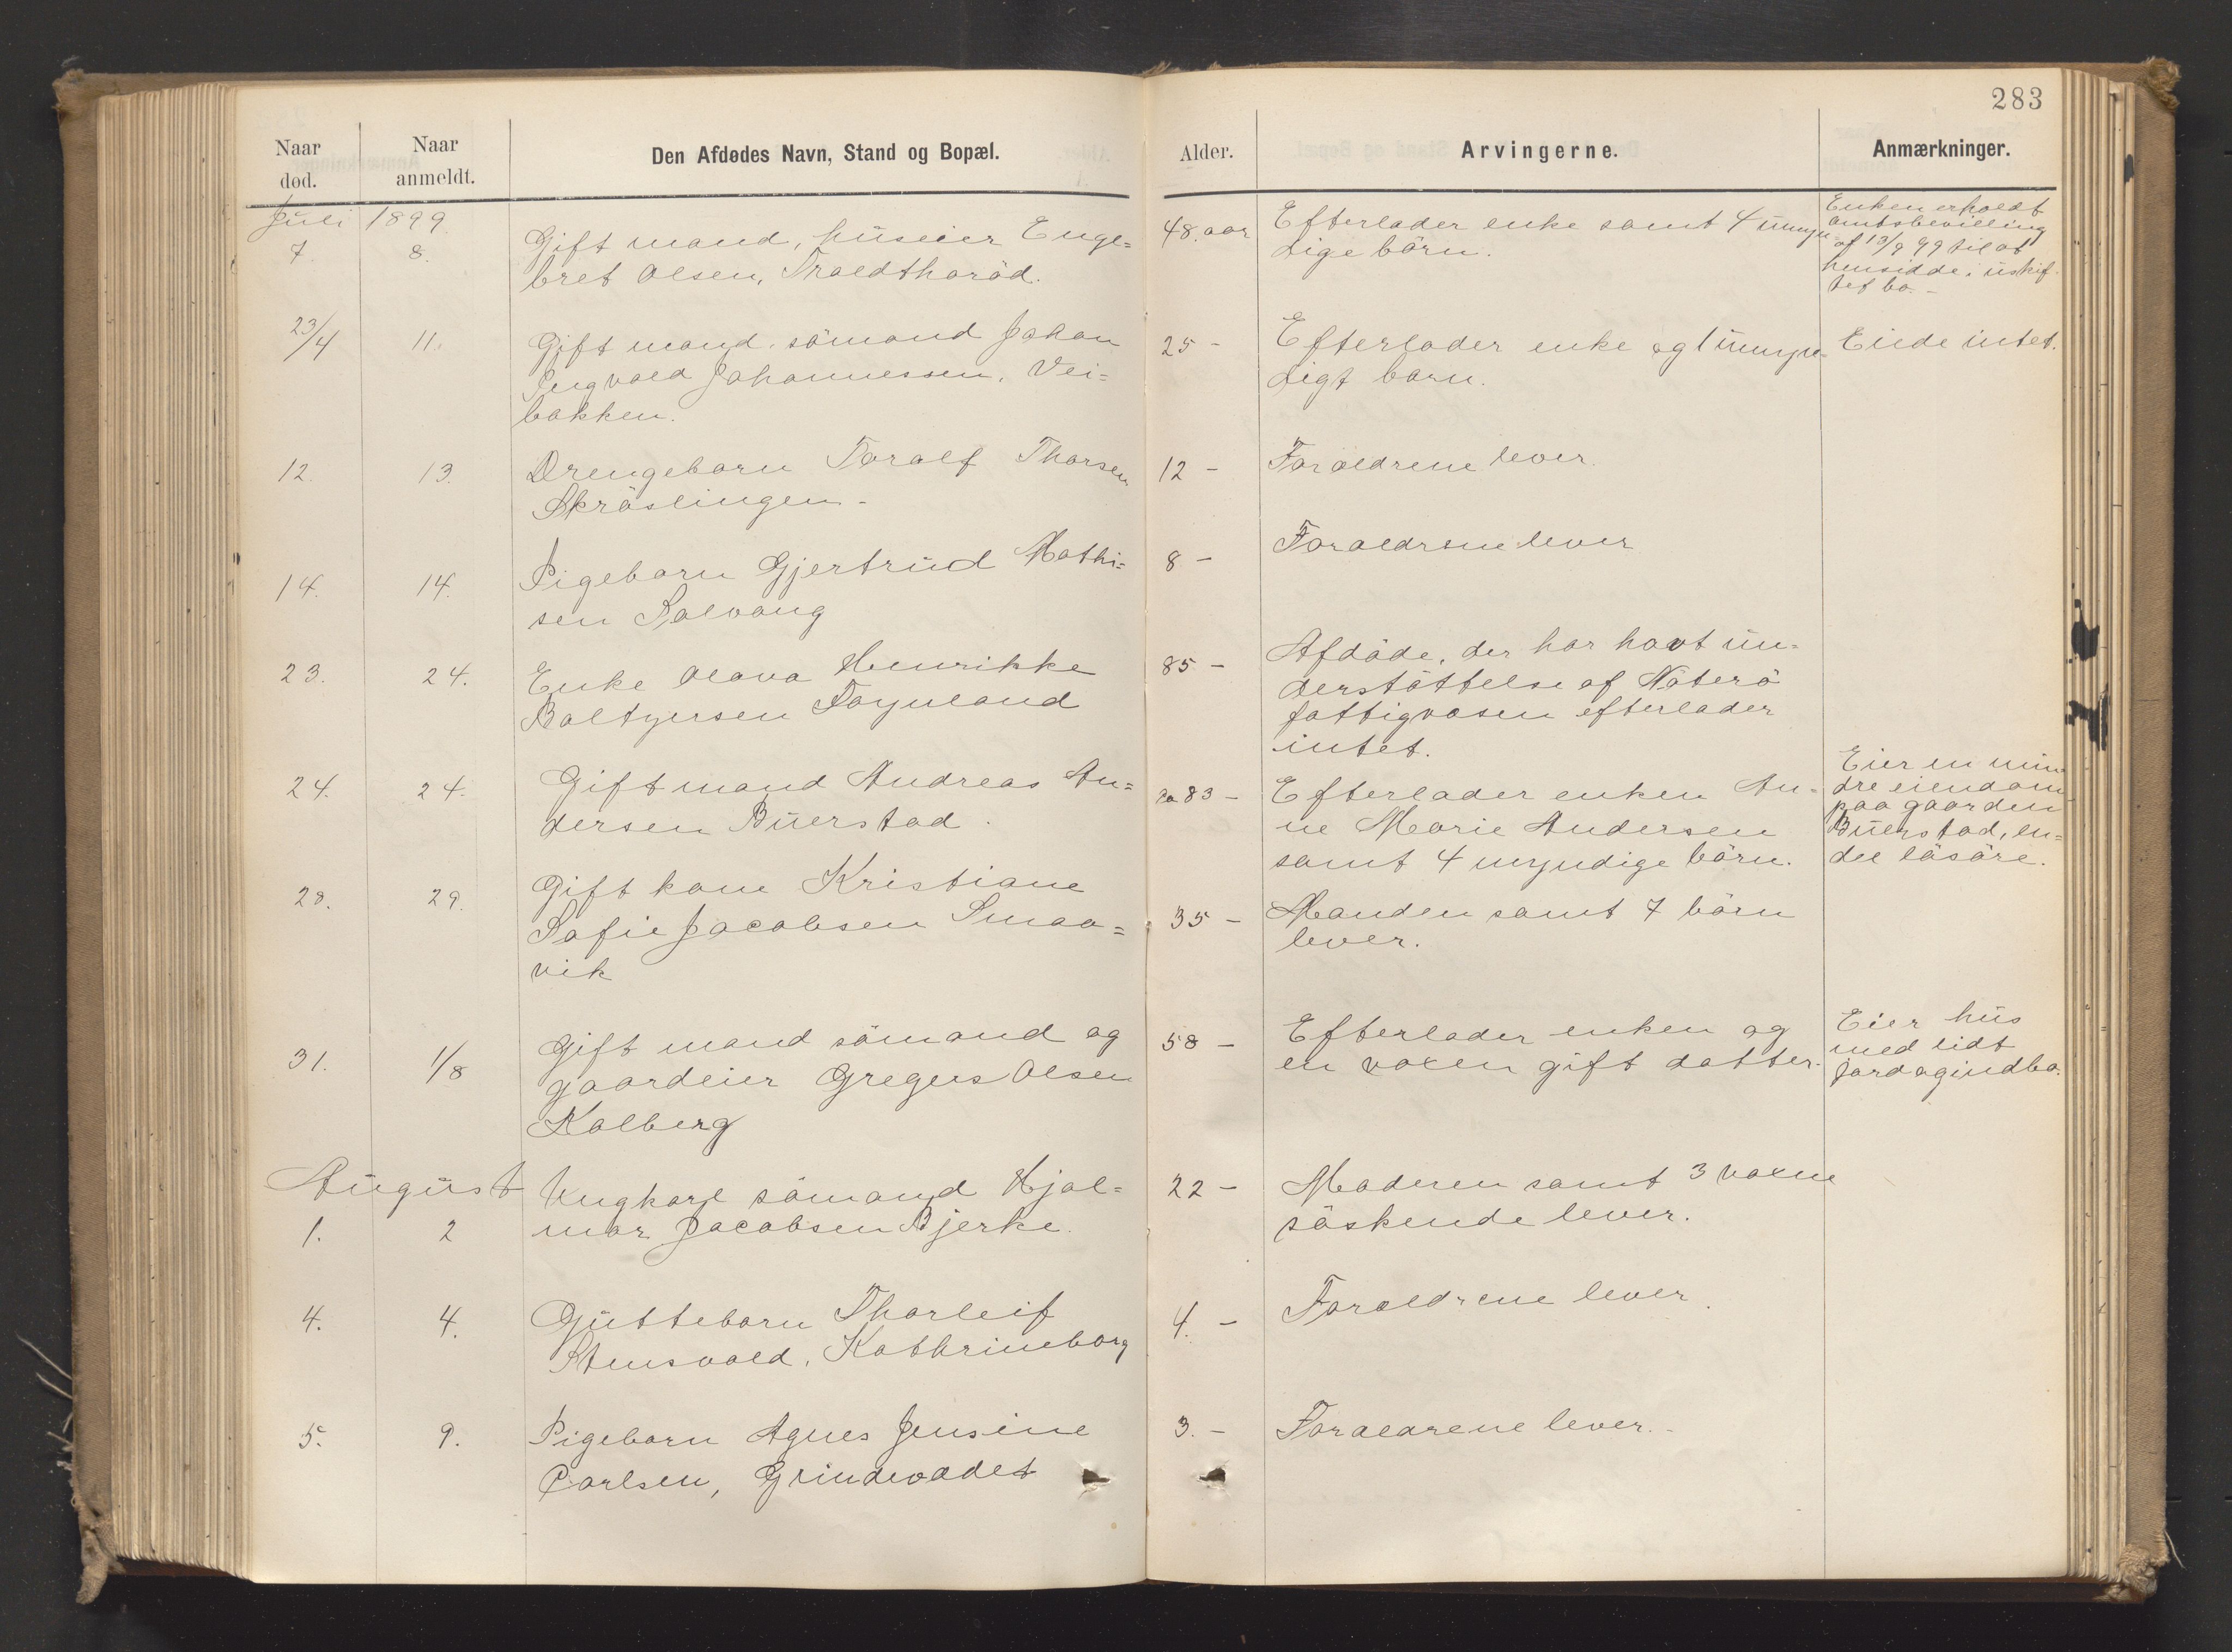 283
Naar død.
Naar anmeldt.
Den Afdødes Navn, Stand og Bopæl.
Alder.
Arvingerne.
Anmærkninger.
Juli 1899
7. 8. Gift mand, huseier Enge=
bret Olsen, Træltharöd.
48. aar Efterlader enke samt 4 umyn=
dige börn.
Enken erholdt
amtsbevilling
af 13/9 99 til at
hensidde i uskif
tet bo. -
23/4 11. Gift mand, sömand Johan
Ingvald Johannessen, Vei=
bakken.
25 - Efterlader enke og 1 umyn=
digt barn.
Eiede intet.
12. 13. Drengebarn Toralf Thorsen
Skröslingen -
12 - Foraldrene lever.
14. 14. Pigebarn Gjertrud Mathi=
sen Solvang
8 - Foraldrene lever
23. 24. Enke Olava Henrikke
Baltzersen Föynland
85 - Afdöde, der har havt un=
derstöttelse af Nöterö
fattigvæsen efterlader
intet.
24. 24. Gift mand Andreas An=
dersen Buerstad.
83 - Efterlader enken An=
ne Marie Andersen
samt 4 myndige börn.
Eier en min
dre eiendom
paa gaarden
Buerstad, en=
del lösöre.
28. 29. Gift kone Kristiane
Sofie Jacobsen Smaa=
vik
35 - Manden samt 7 börn
lever.
31. 1/8 Gift mand sömand og
gaardeier Gregers Olsen
Kolberg
58 - Efterlader enken og
en voxen gift datter.
Eier hus
med lidt
jord og indbo.
August
1. 2 Ungkarl sömand Hjal=
mar Jacobsen Bjerke.
22 - Moderen samt 3 voxne
söskende lever.
4. 4. Guttebarn Thorleif
Stensvold, Kathrineborg
4. - Foraldrene lever.
5. 9. Pigebarn Agnes Jensine
Carlsen, Grindevadet
3. - Foraldrene lever. -